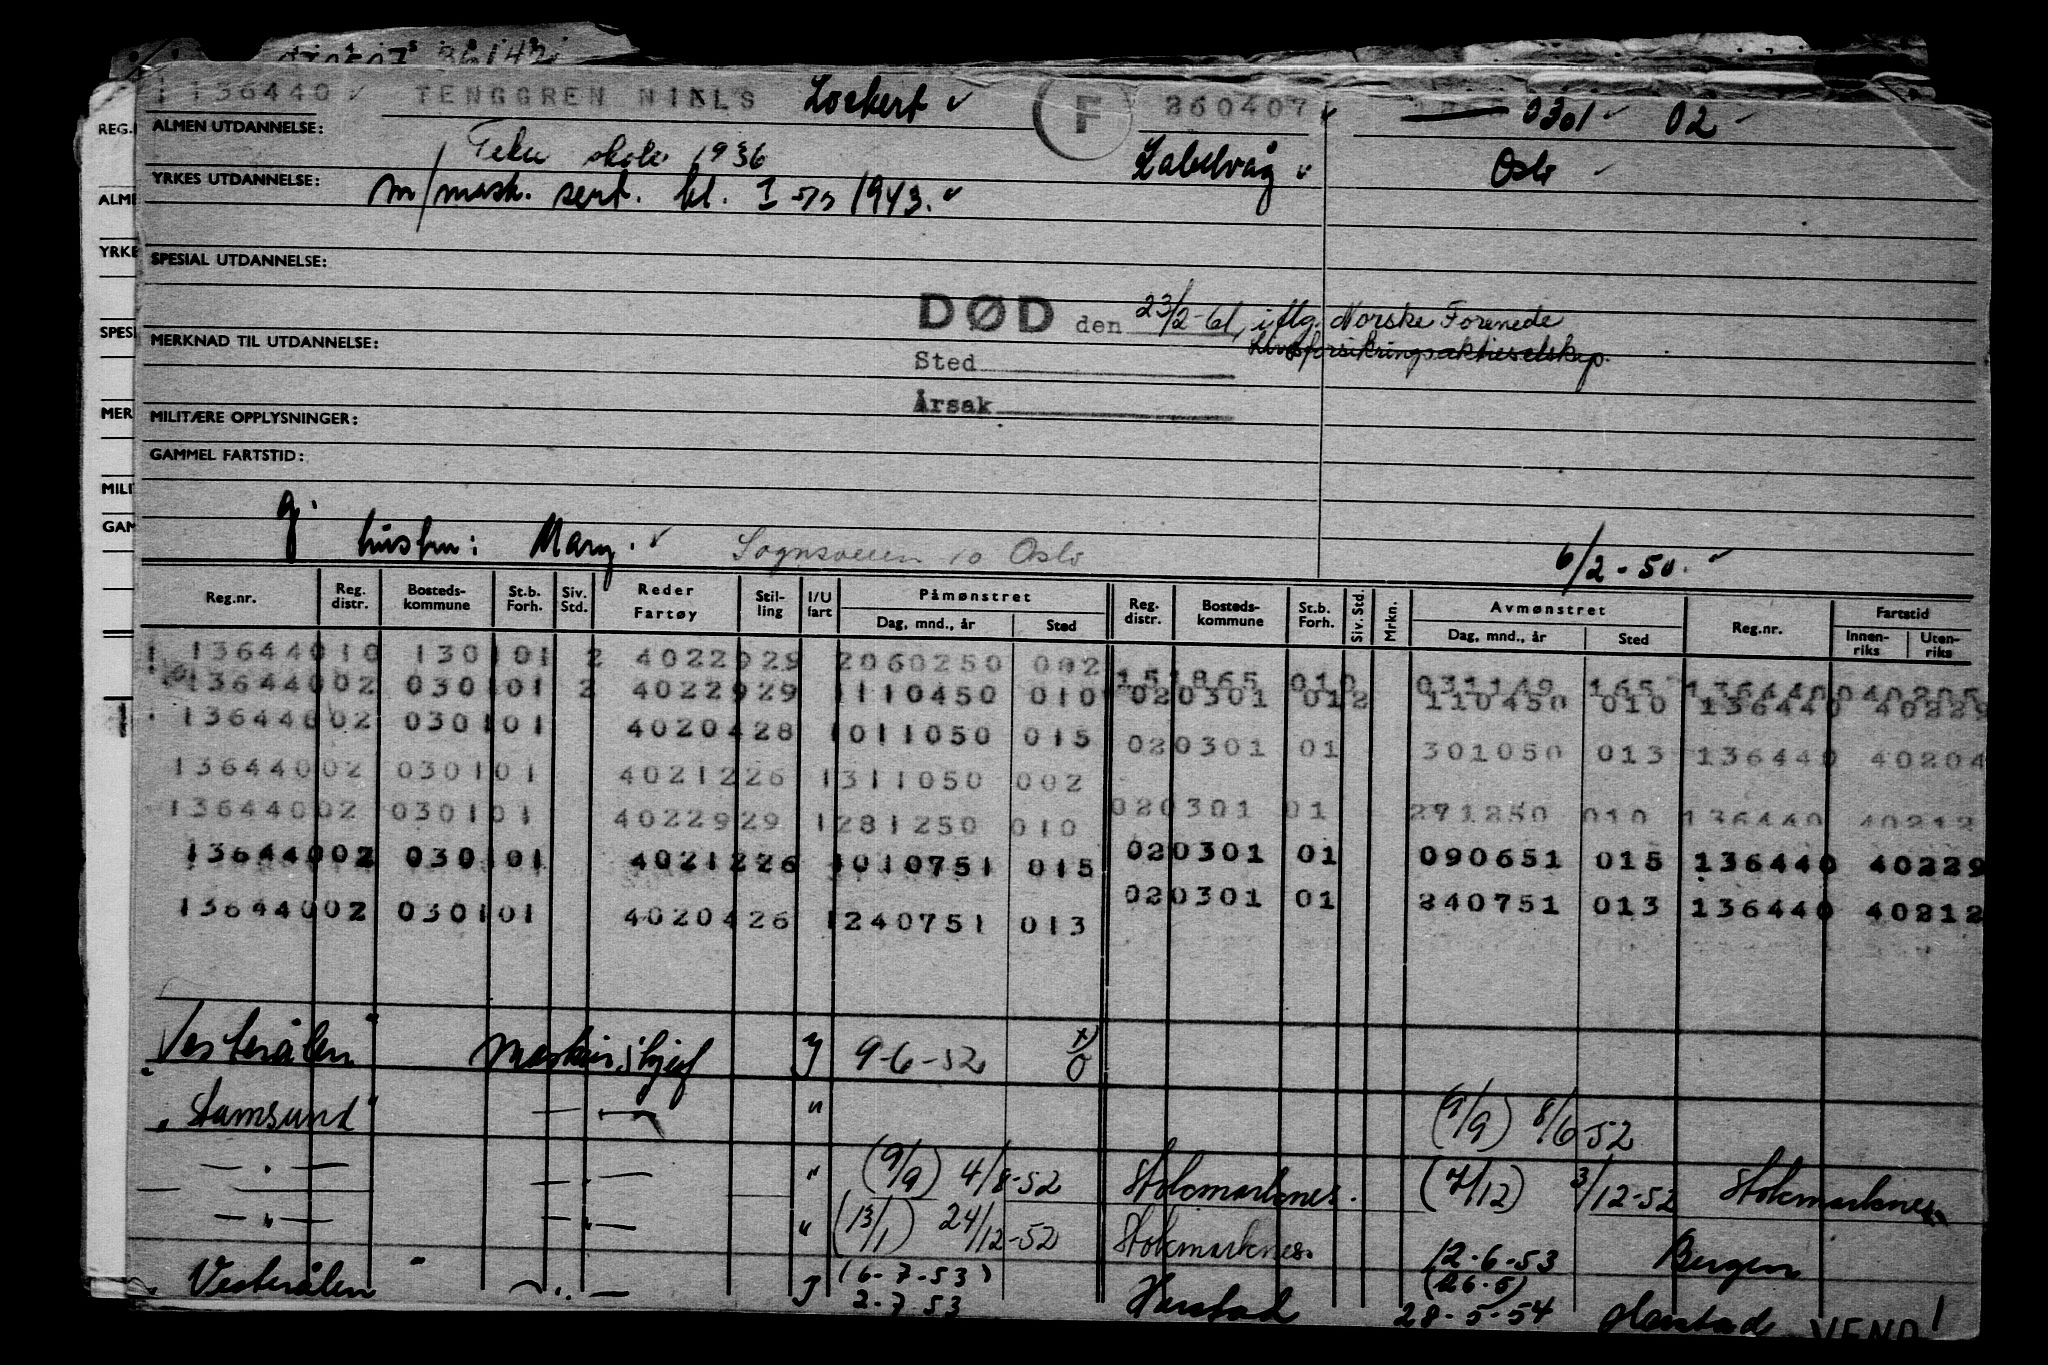 136440 TENGGREN NIKLS Lockert F 260407 0301 02
ALMEN UTDANNELSE: skole 1936 Oslo
YRKES UTDANNELSE: m/mask. sert. kl. I 1943.
SPESIAL UTDANNELSE:
DØD den 23/2-61, iflg. Norske Forenede
Livsforsikringsaktieselskap.
MERKNAD TIL UTDANNELSE:
Sted
Årsak
MILITÆRE OPPLYSNINGER:
GAMMEL FARTSTID:
g.
hustru: Mary. Sognsveien 10 Oslo 6/2-50.
Reg.nr. Reg. distr. Bosteds-kommune St.b. Forh. Siv. Std. Reder Fartøy Stil-ling I/U fart Påmønstret Dag, mnd., år Sted Reg. distr. Bosteds-kommune St.b. Forh. Siv. Std. Mrkn. Avmønstret Dag, mnd., år Sted Reg.nr. Fartstid Innen-riks Uten-riks
13644010 130101 2 4022929 2060250 002 151865 010 031149 165 136440 40205
13644002 030101 2 4022929 1110450 010 020301 012 110450 010 136440 40229
13644002 030101 4020428 1011050 015 020301 01 301050 013 136440 40204
13644002 030101 4021226 1311050 002
13644002 030101 4022929 1281250 010 020301 01 271250 010 136440 40212
13644002 030101 4021226 1010751 015 020301 01 090651 015 136440 40229
13644002 030101 4020426 1240751 013 020301 01 240751 013 136440 40212
Vesterålen" maskinskjef J 9-6-52 x) 0
"Stamsund" — " — " (9/9) 8/6-52
— " — — " — " (9/9) 4/8-52 Stokmarknes. (7/12) 3/12-52 Stokmarknes
— " — — " — " (13/1) 24/12-52 Stokmarknes. 12-6-53 Bergen
"Vesterålen" — " — J (6-7-53) 2-7-53 Harstad (26-5) 28-5-54 Harstad
VEND!